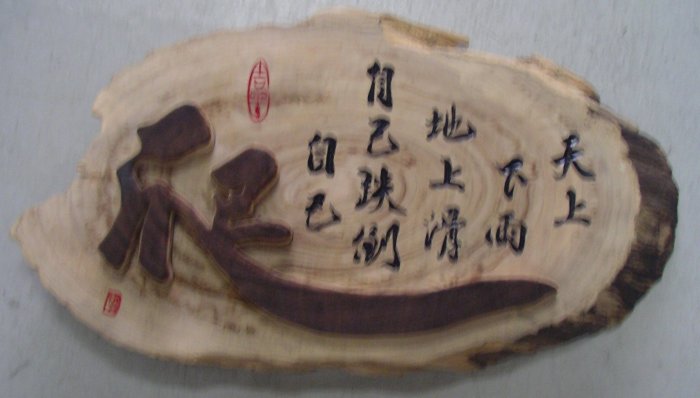 天上
下雨
地上滑
自己跌倒
自己
爬